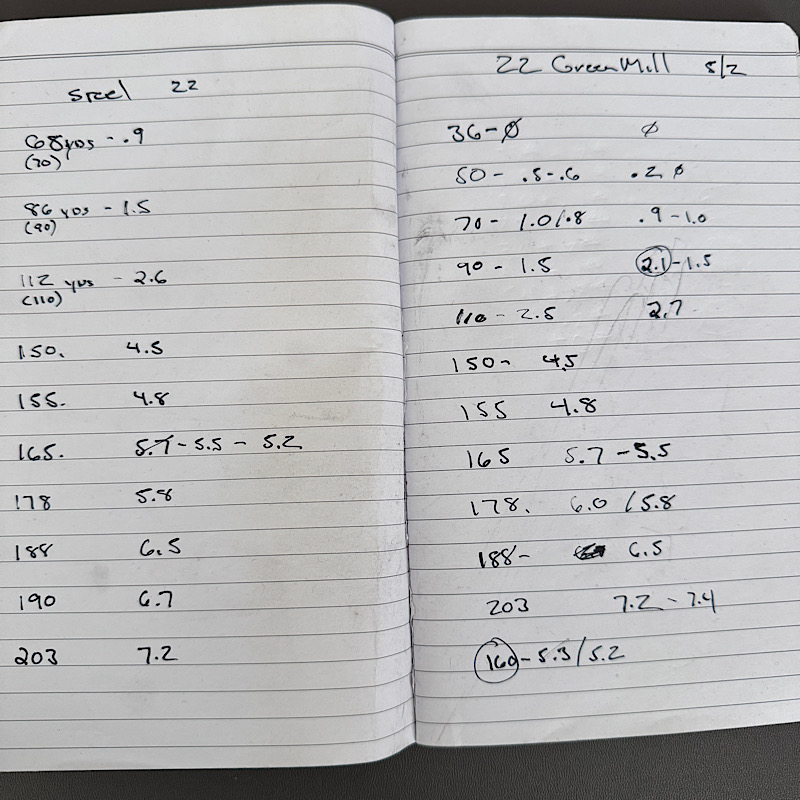 Steel 22
68 yds - .9
(70)
86 yds - 1.5
(90)
112 yds - 2.6
(110)
150. 4.5
155. 4.8
165. 5.7 - 5.5 - 5.2
178 5.8
188 6.5
190 6.7
203 7.2
22 Green Mill 5/2
36 - Ø Ø
50 - .5 - .6 .2 Ø
70 - 1.0/.8 .9 - 1.0
90 - 1.5 2.1 - 1.5
110 - 2.5 2.7
150 - 4.5
155 4.8
165 5.7 - 5.5
178. 6.0 / 5.8
188 - 6.5
203 7.2 - 7.4
160 - 5.3 / 5.2